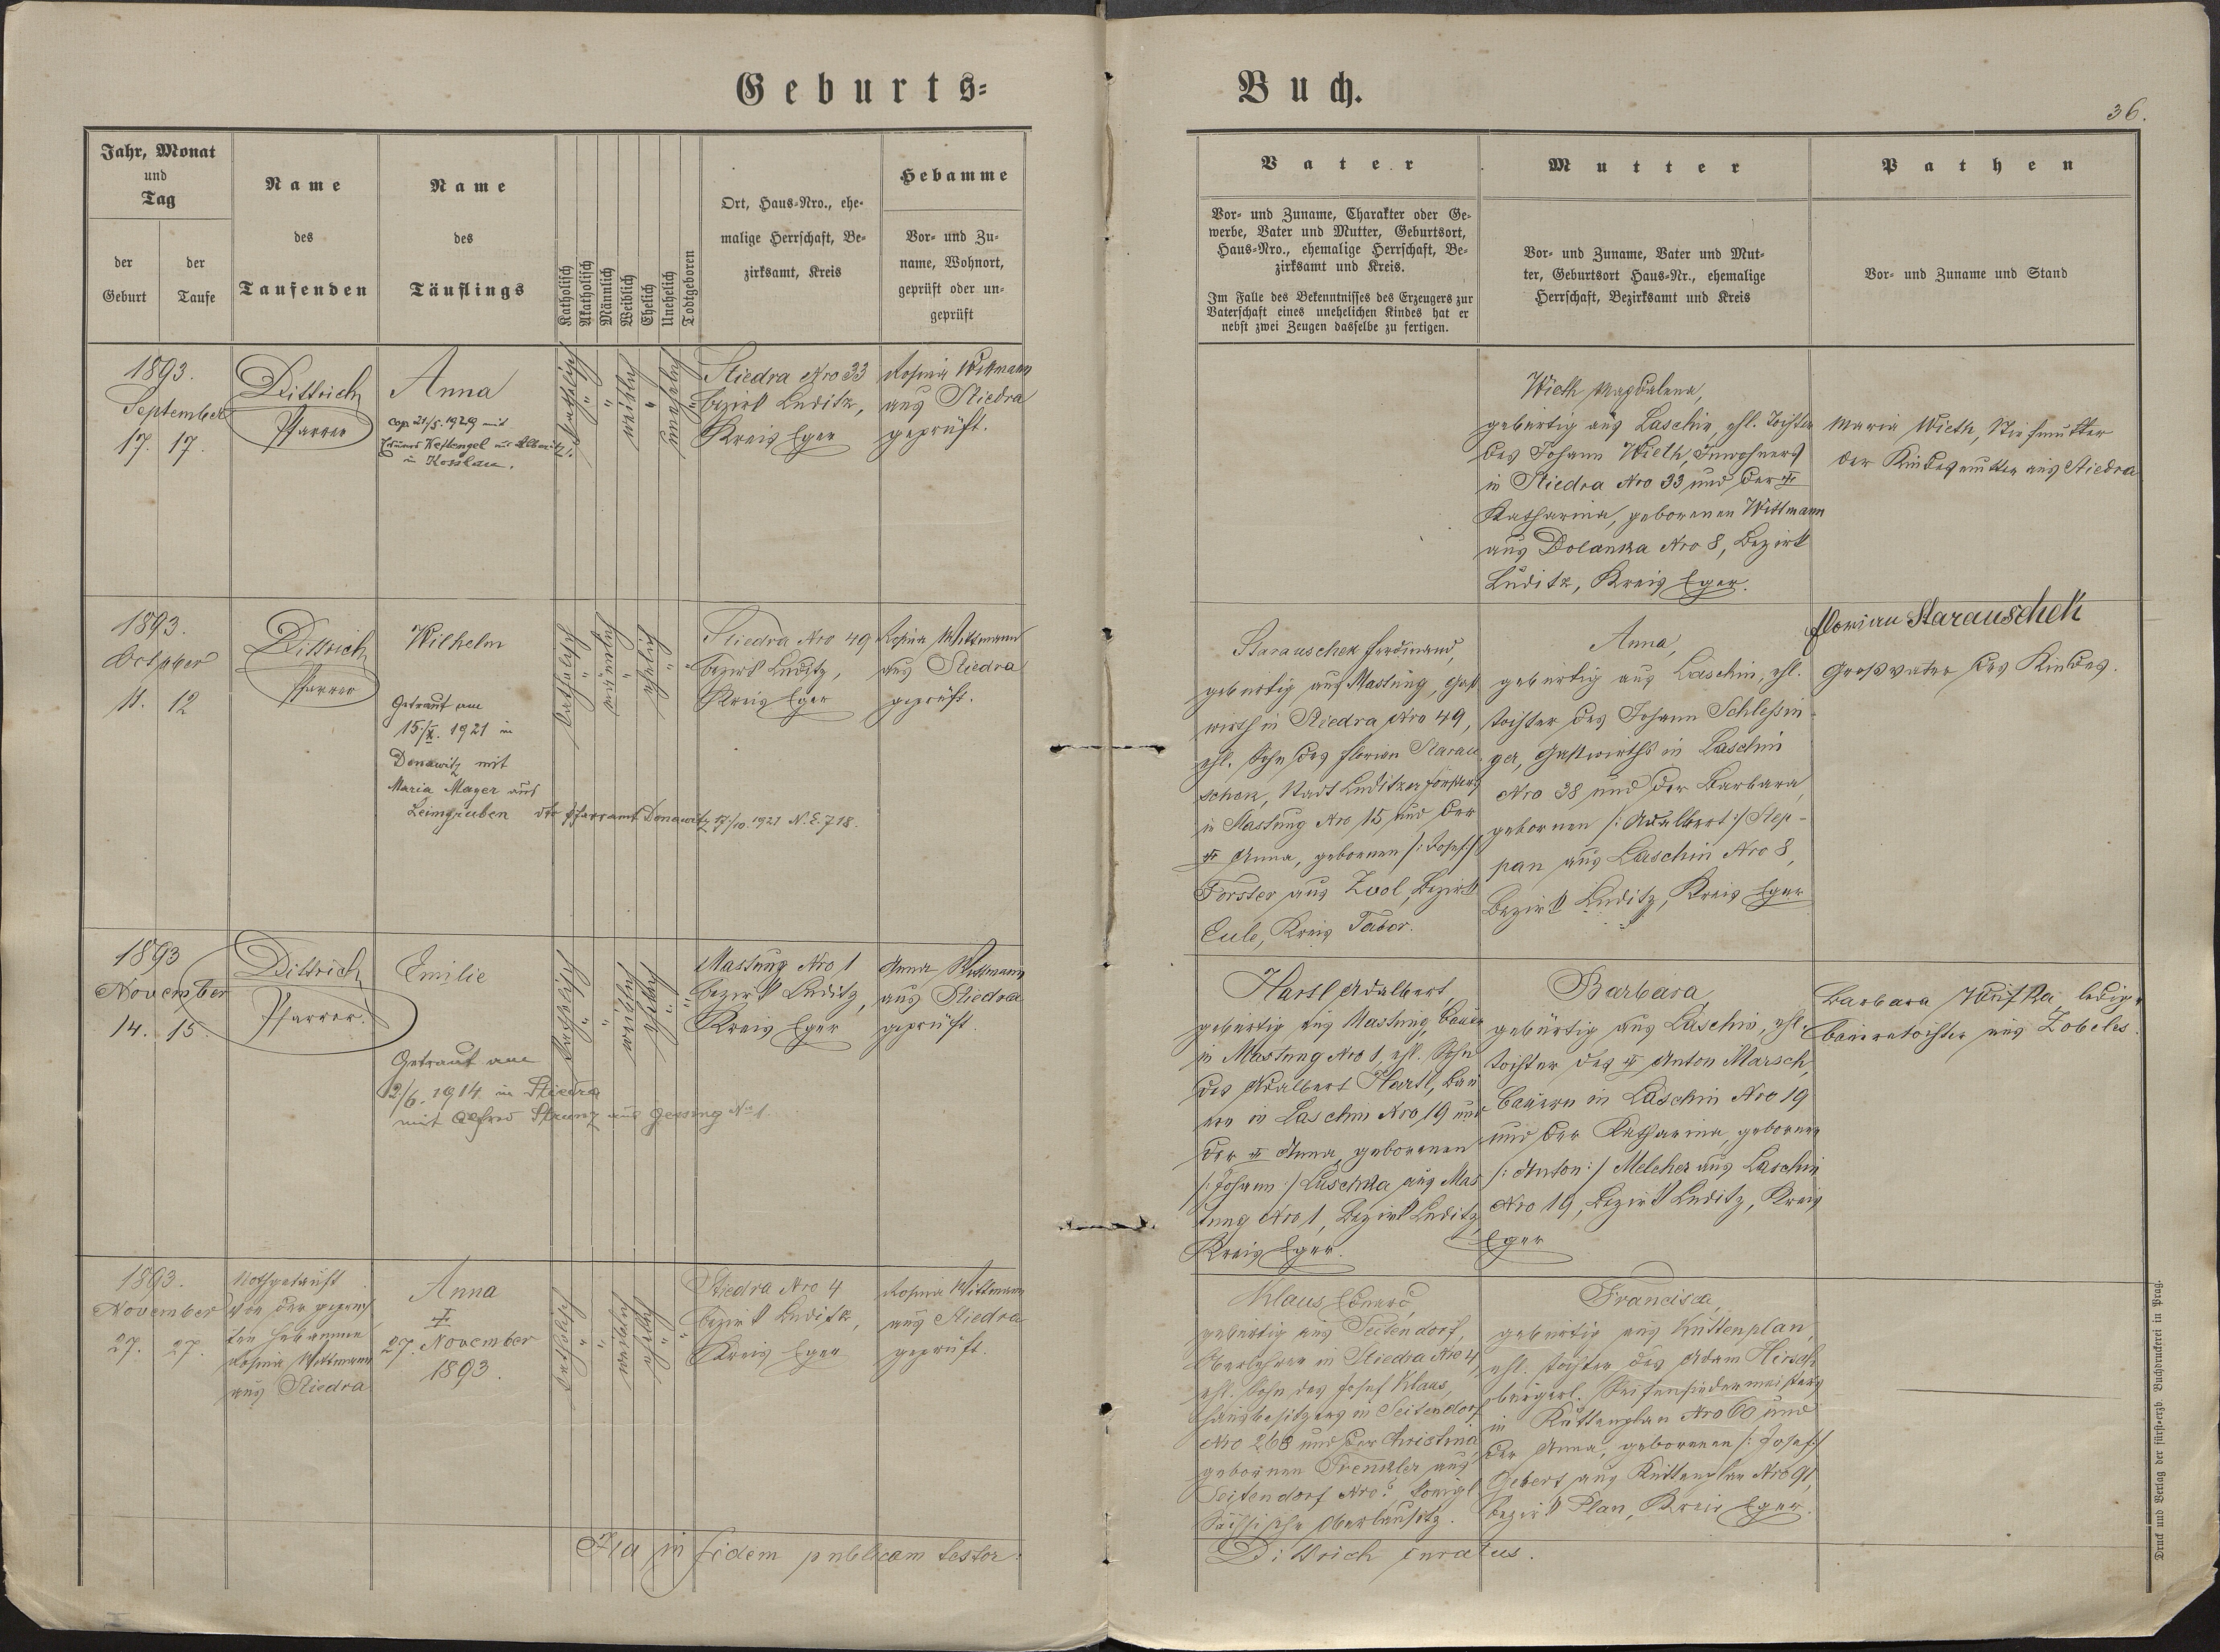 Geburts=
Buch.
36.
Jahr, Monat
und
Tag
der
Geburt
der
Taufe
Name
des
Taufenden
Name
des
Täuflings
Katholisch
Akatholisch
Männlich
Weiblich
Ehelich
Unehelich
Todtgeboren
Ort, Haus-Nro., ehe-
malige Herrschaft, Be-
zirksamt, Kreis
Hebamme
Vor- und Zu-
name, Wohnort,
geprüft oder un-
geprüft
Vater
Vor- und Zuname, Charakter oder Ge-
werbe, Vater und Mutter, Geburtsort,
Haus-Nro., ehemalige Herrschaft, Be-
zirksamt und Kreis.
Im Falle des Bekenntnisses des Erzeugers zur
Vaterschaft eines unehelichen Kindes hat er
nebst zwei Zeugen dasselbe zu fertigen.
Mutter
Vor- und Zuname, Vater und Mut-
ter, Geburtsort Haus-Nr., ehemalige
Herrschaft, Bezirksamt und Kreis
Pathen
Vor- und Zuname und Stand
1893.
September
17. 17.
Dittrich
Pfarrer
Anna
cop. 21/5. 1929 mit
in Kosslau.
katholisch
"
"
weiblich
"
unehelich
"
Stiedra Nro 33
Bezirk Luditz,
Kreis Eger
Rosina Wittmann
aus Stiedra
geprüft.
Wieth Magdalena,
gebürtig aus Laschin, ehl. Tochter
des Johann Wieth, Inwohners
in Stiedra Nro 33 und der
Katharina, geborenen Wittmann
aus Dolanka Nro 8, Bezirk
Luditz, Kreis Eger.
Maria Wieth, Stiefmutter
der Kindesmutter aus Stiedra
1893.
October
11. 12
Dittrich
Pfarrer
Wilhelm
Getraut am
15./X. 1921 in
Donawitz mit
Maria Mayer aus
Leimgruben dto Pfarramt Donawitz 17./10. 1921 N.E. 718.
katholisch
"
männlich
"
ehelich
"
"
Stiedra Nro 49
Bezirk Luditz,
Kreis Eger
Rosina Wittmann
aus Stiedra
geprüft.
Starauschek Ferdinand,
gebürtig aus Mastung, Gast
wirth in Stiedra Nro 49,
ehl. Sohn des Florian Starau
schek, Stadt Luditzer Försters
in Mastung Nro 15 und der
Anna, geborenen /: Josef :/
Forster aus Zvol, Bezirk
Eule, Kreis Tabor.
Anna,
gebürtig aus Laschin, ehl.
Tochter des Johann Schlessin-
ger, Gastwirths in Laschin
Nro 38 und der Barbara,
gebornen /: Adalbert :/ Step-
pan aus Laschin Nro 8,
Bezirk Luditz, Kreis Eger
Florian Starauschek
Großvater des Kindes.
1893
November
14. 15.
Dittrich
Pfarrer.
Emilie
Getraut am
2/6. 1914 in Stiedra
mit Alfred Strunz aus Gessing No 1.
katholisch
"
"
weiblich
ehelich
"
"
Mastung Nro 1
Bezirk Luditz,
Kreis Eger
Anna Wittmann
aus Stiedra
geprüft.
Hartl Adalbert,
gebürtig aus Mastung, Bauer
in Mastung Nro 1, ehl. Sohn
des Adalbert Hartl, Bau
ern in Laschin Nro 19 und
der Anna, geborenen
/: Johann :/ Luschka aus Mas
tung Nro 1, Bezirk Luditz,
Kreis Eger.
Barbara,
gebürtig aus Laschin, ehl.
Tochter des Anton Marsch,
Bauern in Laschin Nro 19
und der Katharina, gebornen
/: Anton :/ Melcher aus Laschin
Nro 19, Bezirk Luditz, Kreis
Eger
Barbara ledige
Bauerntochter aus Zobeles.
1893.
November
27. 27.
Nothgetauft
von der geprüf
ten Hebamme
Rosina Wittmann
aus Stiedra
Anna
27. November
1893.
katholisch
"
"
weiblich
ehelich
"
"
Stiedra Nro 4
Bezirk Luditz,
Kreis Eger
Rosina Wittmann
aus Stiedra
geprüft.
Klaus Eduard,
gebürtig aus Seitendorf,
Oberlehrer in Stiedra Nro 4,
ehl. Sohn des Josef Klaus,
Hausbesitzers in Seitendorf
Nro 268 und der Christina
gebornen Trenkler aus
Seitendorf Nro ? königl.
sächsische Oberlausitz.
Francisca,
gebürtig aus Kuttenplan,
ehl. Tochter des Adam Hirsch
bürgerl. Seifensiedermeisters
in Kuttenplan Nro 60 und
der Anna, geborenen /: Josef :/
Gebert aus Kuttenplan Nro 91,
Bezirk Plan, Kreis Eger.
Ita in fidem publicam testor:
Dittrich curatus.
Druck und Verlag der fürst-erzb. Buchdruckerei in Prag.